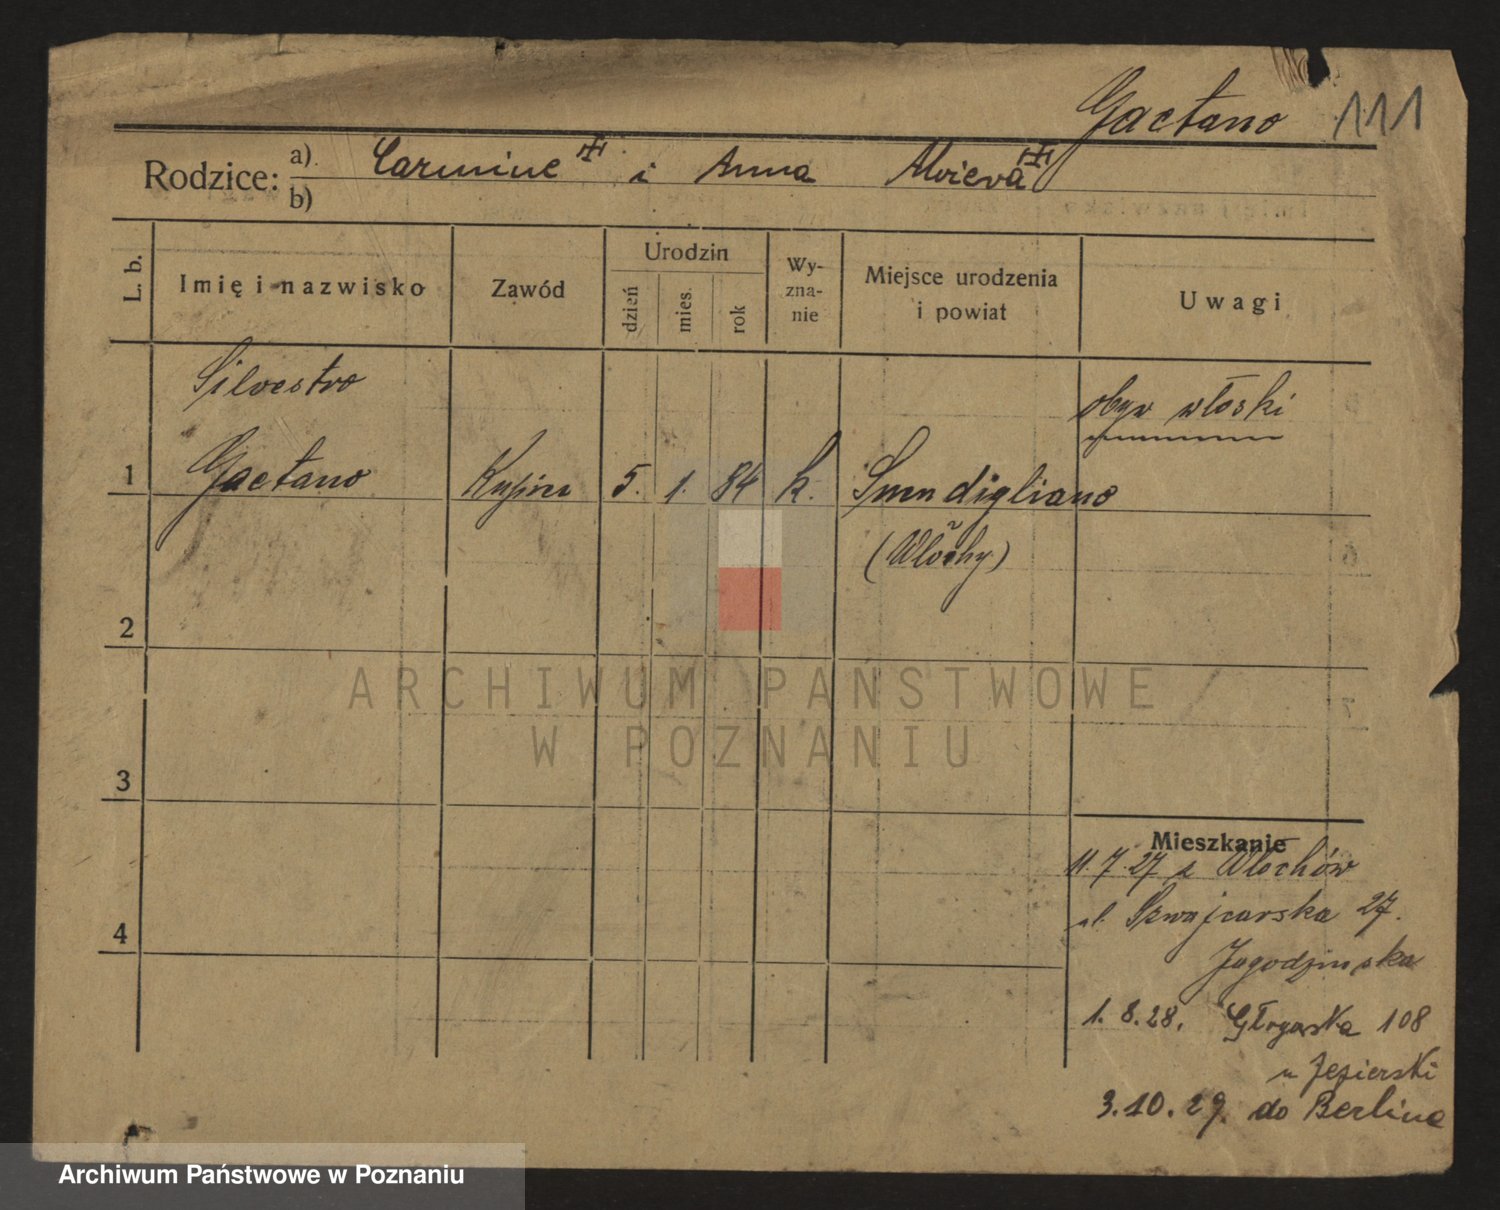 Gaetano 111
Rodzice: a) Carmine i Anna
b)
L. b. Imię i nazwisko Zawód Urodzin dzień mies. rok Wy-zna-nie Miejsce urodzenia i powiat Uwagi
Silvestro
obyw włoski
1 Gaetano Kupiec 5. 1. 84 k. Smendigliano
(Włochy)
2
ARCHIWUM PAŃSTWOWE
W POZNANIU
3
Mieszkanie
11.7.27 z Włochów
ul. Szwajcarska 27.
4
Jagodzinska
1.8.28. Głogowska 108
u Jezierski
3.10.29. do Berlina
Archiwum Państwowe w Poznaniu